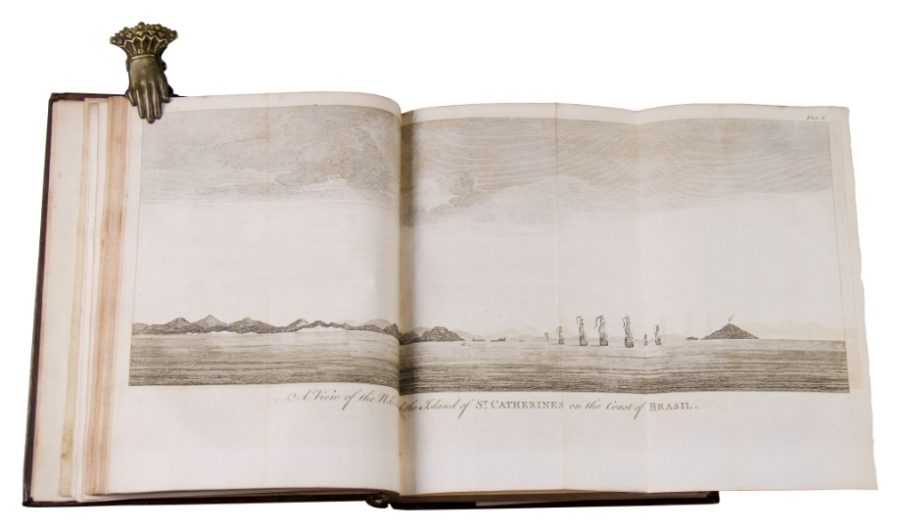 Plate I.
A View of the N.E. the Island of St. CATHERINES on the Coast of BRASIL.